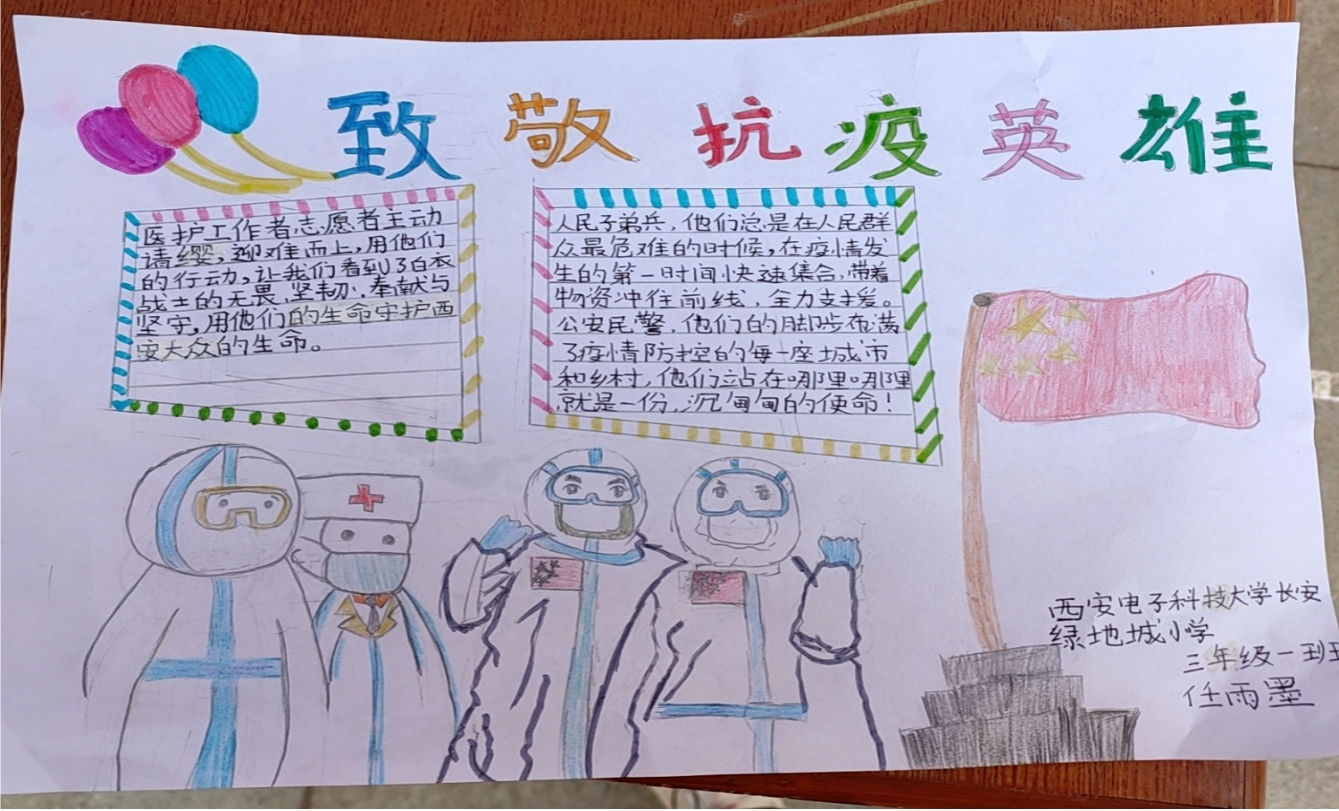 致敬抗疫英雄
医护工作者志愿者主动
请缨，迎难而上，用他们
的行动，让我们看到了白衣
战士的无畏、坚韧、奉献与
坚守，用他们的生命守护西
安大众的生命。
人民子弟兵，他们总是在人民群
众最危难的时候，在疫情发
生的第一时间快速集合，带着
物资冲往前线，全力支援。
公安民警，他们的脚步布满
了疫情防控的每一座城市
和乡村，他们站在哪里哪里
就是一份，沉甸甸的使命！
西安电子科技大学长安
绿地城小学
三年级一班
任雨墨